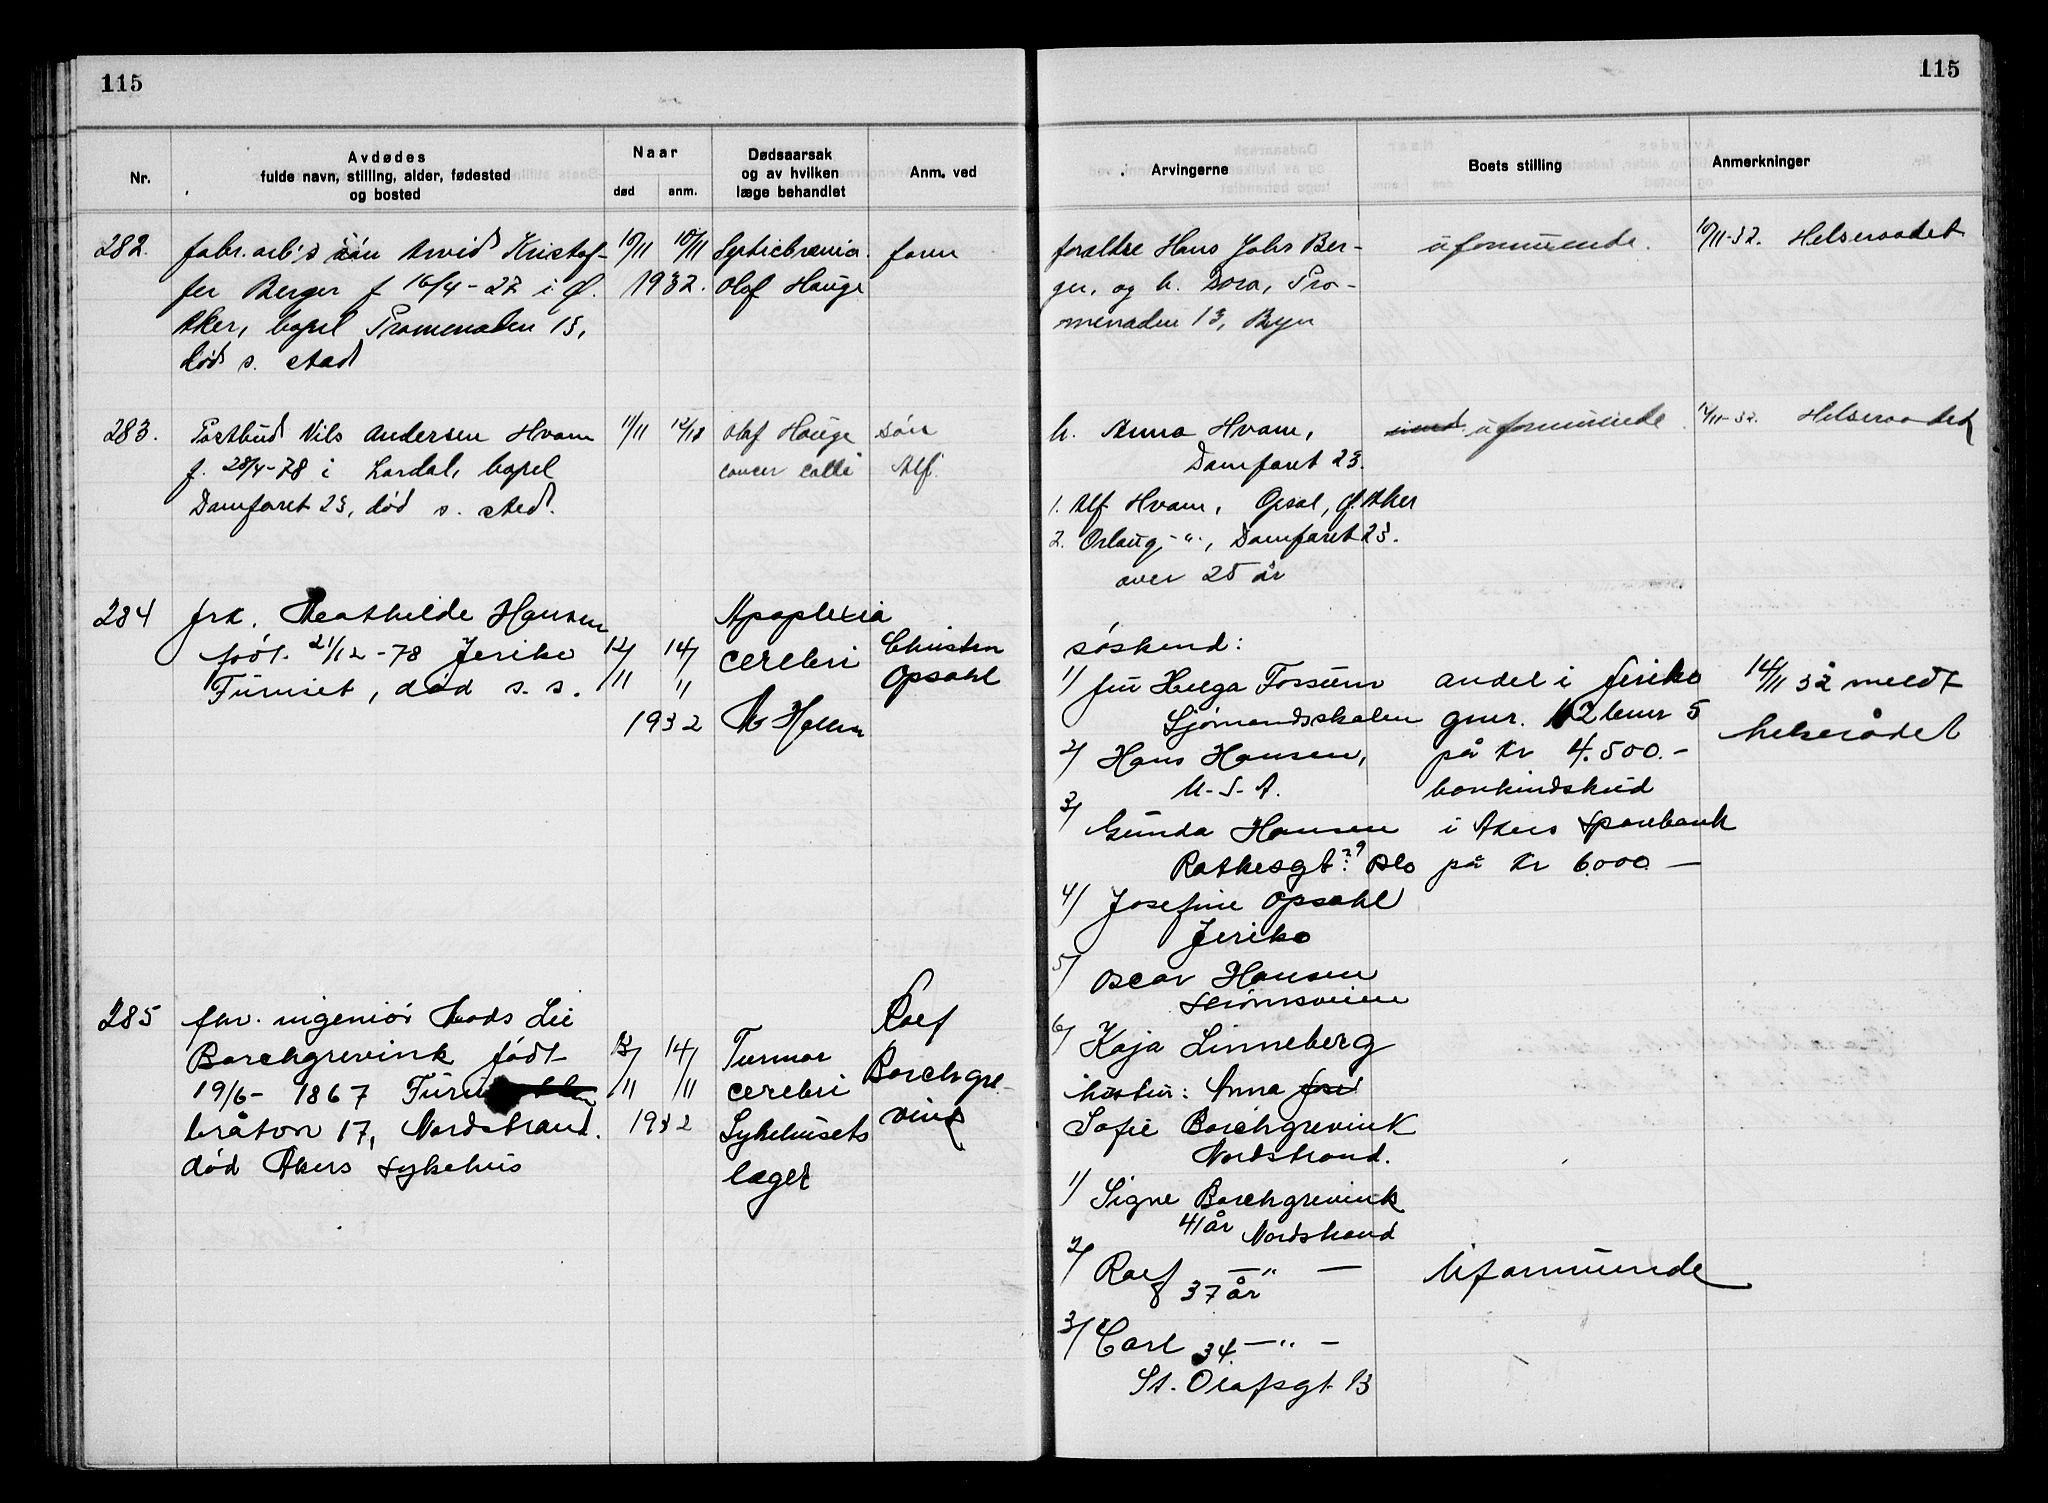 115
115
Nr.
Avdødes
fulde navn, stilling, alder, fødested
og bosted
Naar
død
anm.
Dødsaarsak
og av hvilken
læge behandlet
Anm. ved
Arvingerne
Boets stilling
Anmerkninger
282.
fabr. arb's sön Arvid Kristof-
fer Berger f 16/4-27 i Ø.
Aker, bopel Promenaden 13,
död s. stad
10/11 10/11
1932.
Olaf Hauge
faren
foreldre Hans Johs Ber-
ger, og h. Dora, Pro-
menaden 13, Byn
uformuende.
10/11-32. Helseraadet
283.
Postbud Nils Andersen Hvam
f. 28/4-78 i Lardal, bopel
Damfaret 23, död s. sted.
11/11 12/11
Olaf Hauge
cancer colli
sön
Alf.
h. Anna Hvam,
Damfaret 23.
1. Alf Hvam, Opsal, Ø. Aker
2. Oslaug -"-, Damfaret 23.
over 25 år
uformuende.
12/11-32. Helseraadet
284
frk. Mathilde Hansen
född. 21/12-78 Jeriko
Furuset, död s. s.
12/11 14/11
1932
Apoplexia
cerebri
Christen
Opsahl
söskend:
1/ fru Helga Fossum
Sjömandsskolen
2/ Hans Hansen,
U-S-A.
3/ Gunda Hansen
Rathesgt ? Oslo
4/ Josefine Opsahl
Jeriko
5/ Oscar Hansen
Strömsveien
6/ Kaja Linneberg
andel i Jeriko
gnr. 112 bnr 5
på Kr 4.500.-
bankindskud
i Akers Sparebank
på Kr 6000 -
14/11 32 meldt
helserådet
285
fhv. ingeniör Mads Lie
Borchgrevink född
19/6- 1867 Furu
bråton 17, Nordstrand.
död Akers sykehus
13/11 14/11
1932
Tumor
cerebri
Sykehusets
læger
Roef
Borchgre-
vink
hustru: Anna
Sofie Borchgrevink
Nordstrand.
1/ Signe Borchgrevink
41 år Nordstrand
2/ Roef -"-
37 år
3/ Carl 34 -"-
St. Olafsgt 13
Uformuende